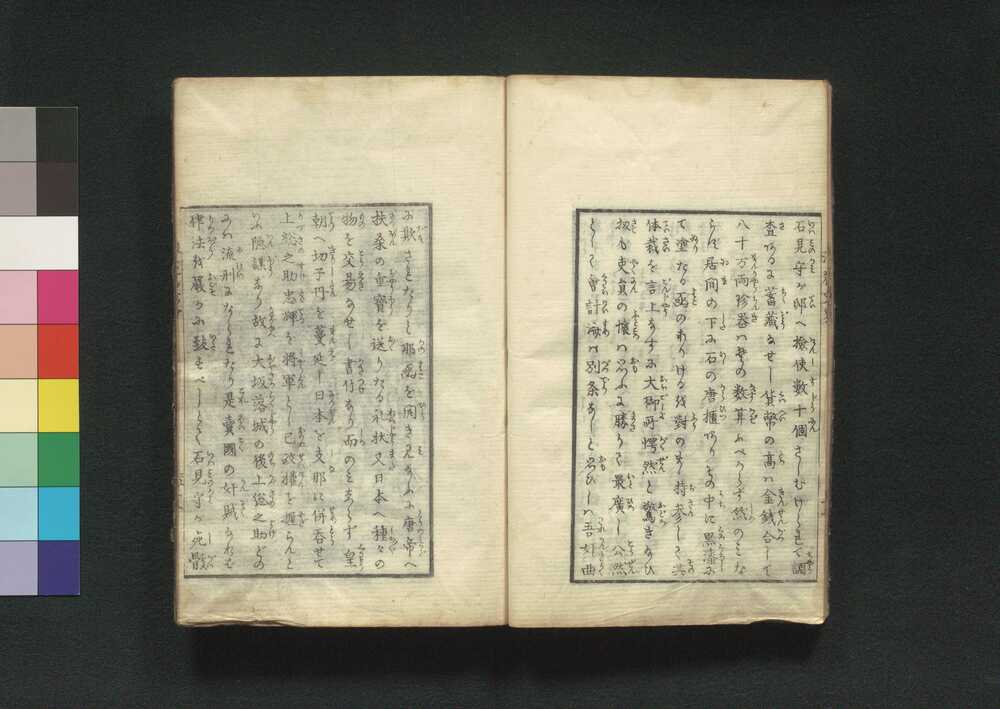 石見守が邸へ検使数十個さしむけられて調
査あるに蓄蔵なせし貨幣の高は金銭合して
八十万両珍器は其の数算ふべからず然のみな
らず居間の下に石の唐櫃ありその中に黒漆に
て塗たる函のありけるを封のまゝ持参して其
体裁を言上なすに大御所愕然と驚き給ひ
扨も吏員の懐は思ふに勝りて最廣し公然
として会計 は別条なしと思ひしは吾 曲
に欺されたりと那函を開き見給ふに唐帝へ
扶桑の重寶を送りたる礼状又日本へ種々の
物を交易なせし書付あり而のみならず 皇
朝へ切子丹を蔓延し日本を支那に併呑せて
上総之助忠輝を将軍とし己政権を握らんと
の隠謀あり故に大城落城の後上総之助どの
には流刑になられたり是賣國の奸賊なれば
律法を厳かに鼓すべしとて石見守が死骸